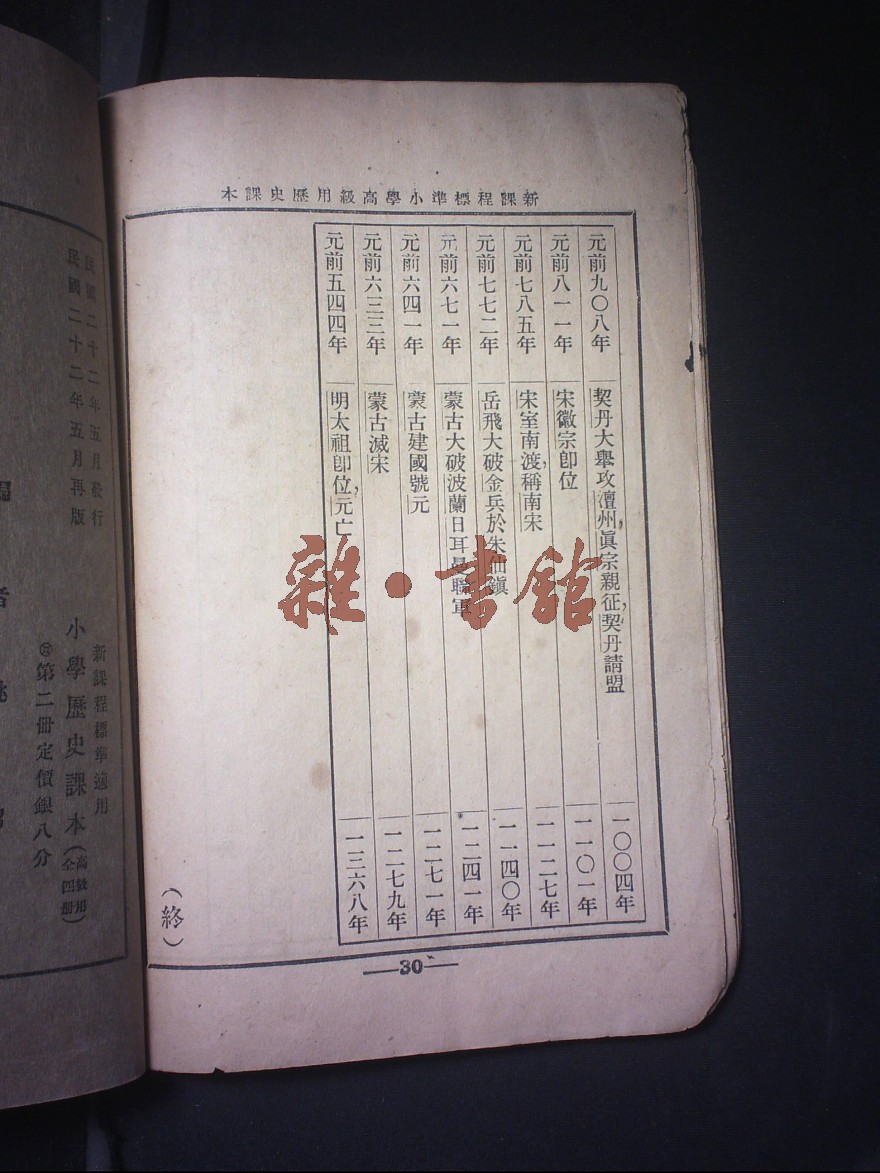 新課程標準小學高級用歷史課本
元前九〇八年 契丹大舉攻澶州,眞宗親征,契丹請盟 一〇〇四年
元前八一一年 宋徽宗卽位 一一〇一年
元前七八五年 宋室南渡,稱南宋 一一二七年
元前七七二年 岳飛大破金兵於朱仙鎭 一一四〇年
元前六七一年 蒙古大破波蘭日耳曼聯軍 一二四一年
元前六四一年 蒙古建國號元 一二七一年
元前六三三年 蒙古滅宋 一二七九年
元前五四四年 明太祖卽位,元亡 一三六八年
(終)
—30—
雜·書館
民國二十二年五月發行
民國二十二年五月再版
新課程標準適用
小學歷史課本(高級用全四册)
第二冊定價銀八分
編者姚